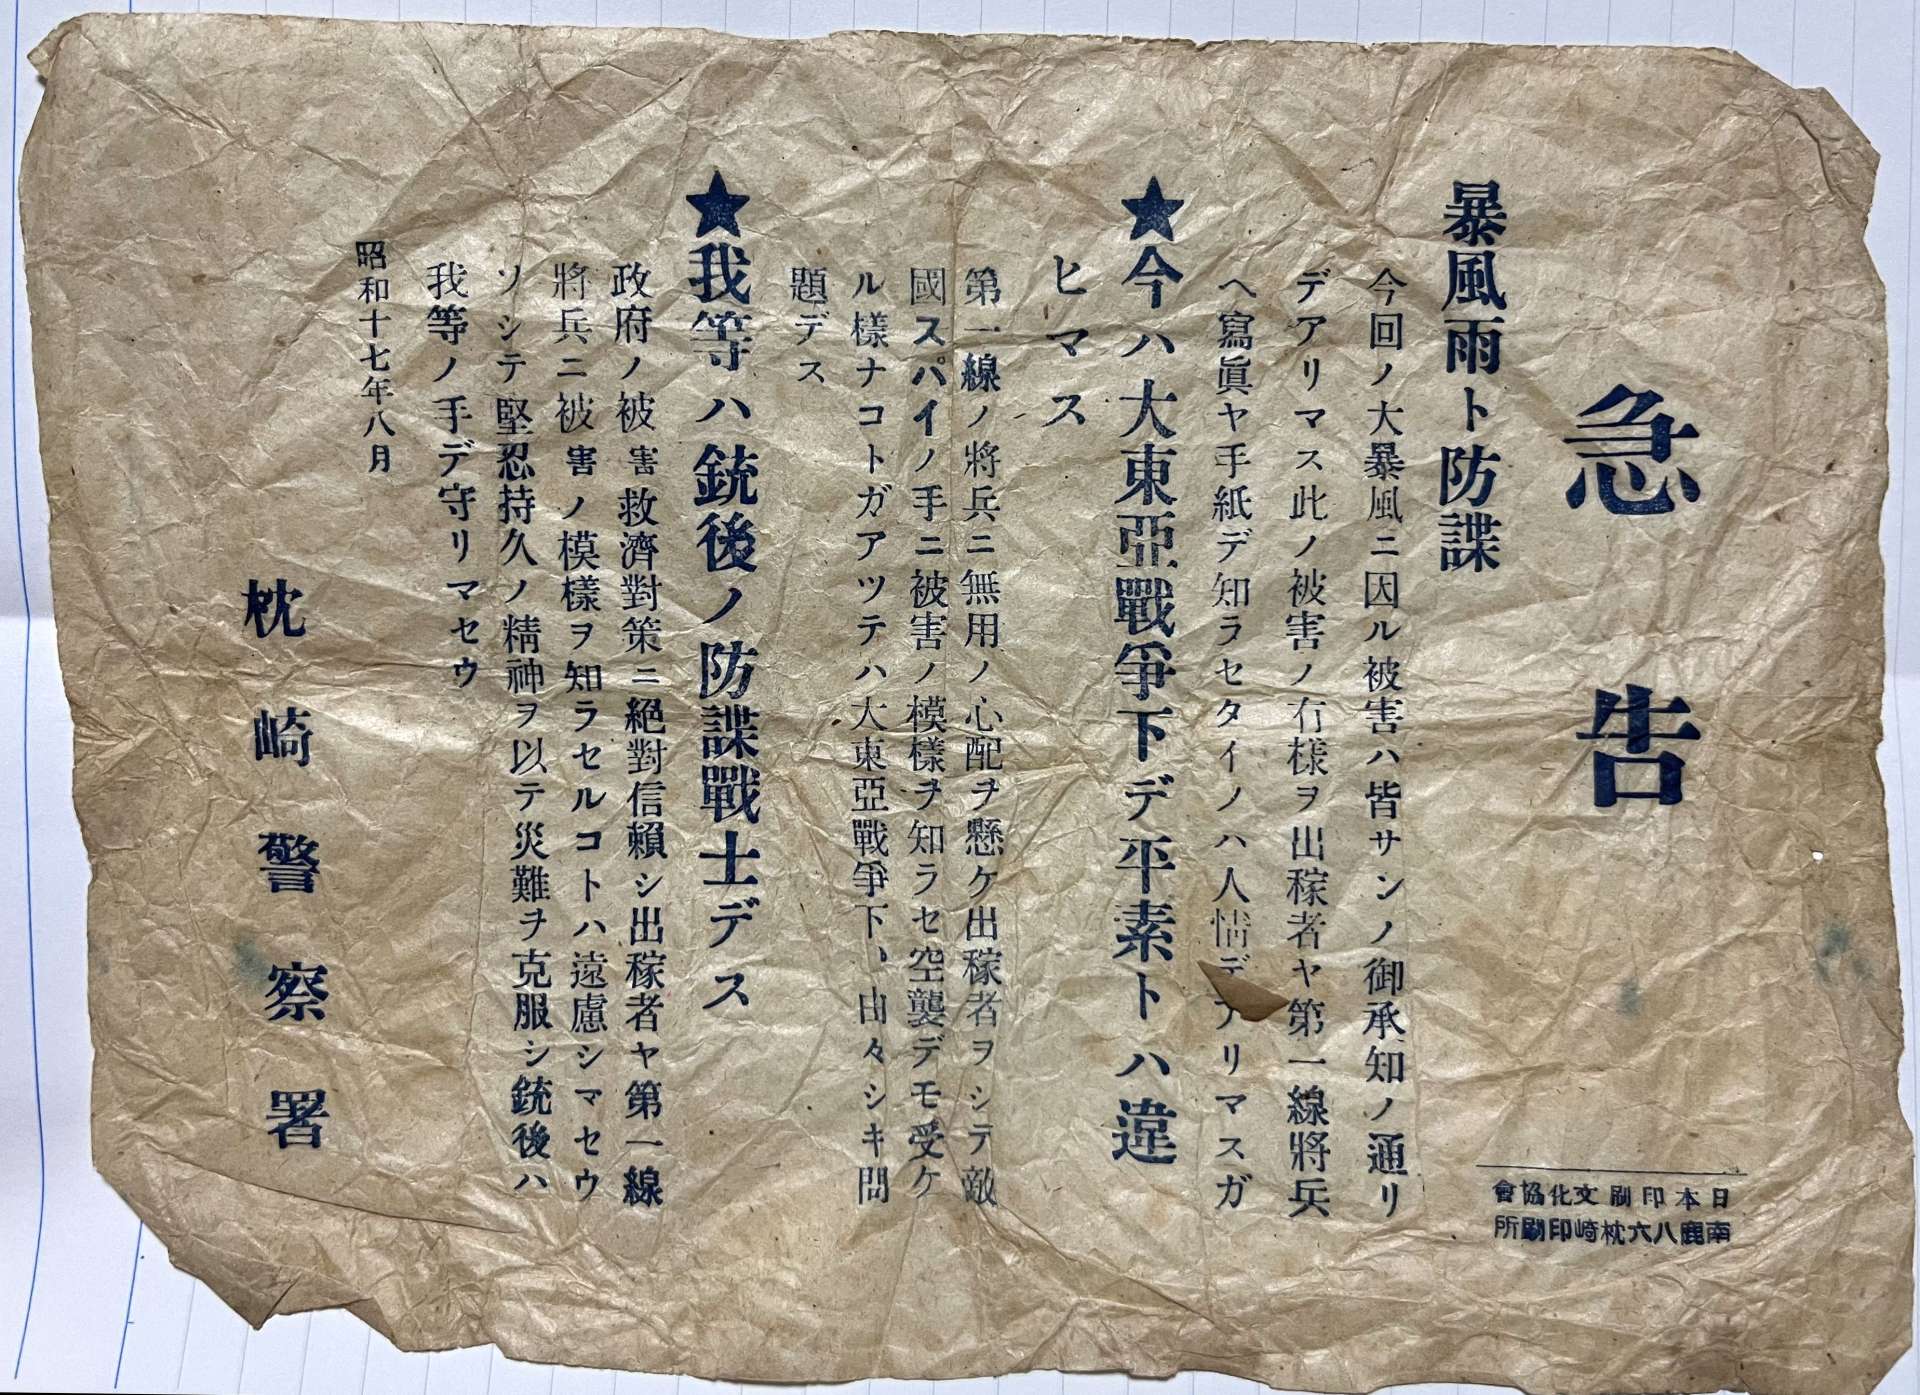 急告
暴風雨ト防諜
今回ノ大暴風ニ因ル被害ハ皆サンノ御承知ノ通リ
デアリマス此ノ被害ノ有樣ヲ出稼者ヤ第一線將兵
ヘ寫眞ヤ手紙デ知ラセタイノハ人情デアリマスガ
★今ハ大東亞戰爭下デ平素トハ違
ヒマス
第一線ノ將兵ニ無用ノ心配ヲ懸ケ出稼者ヲシテ敵
國スパイノ手ニ被害ノ模樣ヲ知ラセ空襲デモ受ケ
ル樣ナコトガアツテハ大東亞戰爭下、由々シキ問
題デス
★我等ハ銃後ノ防諜戰士デス
政府ノ被害救濟對策ニ絕對信賴シ出稼者ヤ第一線
將兵ニ被害ノ模樣ヲ知ラセルコトハ遠慮シマセウ
ソシテ堅忍持久ノ精神ヲ以テ災難ヲ克服シ銃後ハ
我等ノ手デ守リマセウ
昭和十七年八月
枕崎警察署
日本印刷文化協會
南鹿八六枕崎印刷所